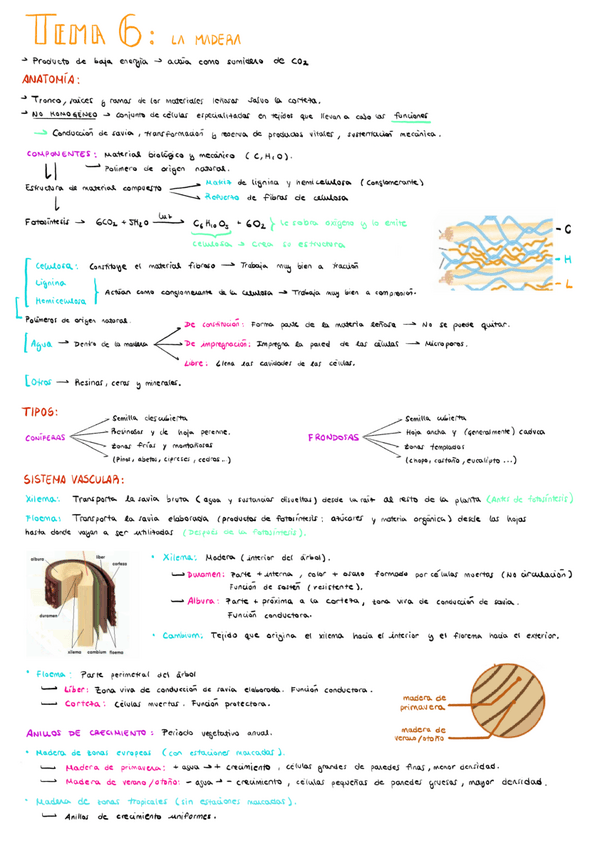 TEMA 6: LA MADERA
→ Producto de baja energía → actúa como sumidero de CO2
ANATOMÍA:
→ Tronco, raíces y ramas de los materiales leñosos salvo la corteza.
→ NO HOMOGÉNEO → conjunto de células especializadas en tejidos que llevan a cabo las funciones
→ Conducción de savia, transformación y reserva de productos vitales, sustentación mecánica.
COMPONENTES: Material biológico y mecánico (C, H, O).
→ Polímero de origen natural.
Estructura de material compuesto → Matriz de lignina y hemicelulosa (conglomerante)
→ Refuerzo de fibras de celulosa
Fotosíntesis → 6CO2 + 5H2O Luz → C6H10O5 + 6O2 } Le sobra oxígeno y lo emite
celulosa → crea su estructura
- C
- H
- L
Celulosa: Constituye el material fibroso → Trabaja muy bien a tracción
Lignina
Hemicelulosa } Actúan como conglomerante de la celulosa → Trabaja muy bien a compresión.
Polímeros de origen natural.
Agua → Dentro de la madera → De constitución: Forma parte de la materia leñosa → No se puede quitar.
→ De impregnación: Impregna la pared de las células → Microporos.
→ Libre: Llena las cavidades de las células.
Otros → Resinas, ceras y minerales.
TIPOS:
CONÍFERAS → Semilla descubierta
→ Resinosas y de hoja perenne.
→ Zonas frías y montañosas
→ (Pinos, abetos, cipreses, cedros...)
FRONDOSAS → Semilla cubierta
→ Hoja ancha y (generalmente) caduca
→ Zonas templadas
→ (chopo, castaño, eucalipto...)
SISTEMA VASCULAR:
Xilema: Transporta la savia bruta (agua y sustancias disueltas) desde la raíz al resto de la planta (Antes de fotosíntesis)
Floema: Transporta la savia elaborada (productos de fotosíntesis: azúcares y materia orgánica) desde las hojas
hasta donde vayan a ser utilizadas (Después de la fotosíntesis).
albura
líber
corteza
duramen
xilema cambium floema
• Xilema: Madera (interior del árbol).
→ Duramen: Parte + interna, color + oscuro formado por células muertas (No circulación)
Función de sostén (resistente).
→ Albura: Parte + próxima a la corteza, zona viva de conducción de savia.
Función conductora.
• Cambium: Tejido que origina el xilema hacia el interior y el floema hacia el exterior.
• Floema: Parte perimetral del árbol
→ Líber: Zona viva de conducción de savia elaborada. Función conductora.
→ Corteza: Células muertas. Función protectora.
madera de
primavera
madera de
verano/otoño
ANILLOS DE CRECIMIENTO: Periodo vegetativo anual.
• Madera de zonas europeas (con estaciones marcadas).
→ Madera de primavera: + agua → + crecimiento, células grandes de paredes finas, menor densidad.
→ Madera de verano/otoño: - agua → - crecimiento, células pequeñas de paredes gruesas, mayor densidad.
• Madera de zonas tropicales (sin estaciones marcadas).
→ Anillos de crecimiento uniformes.